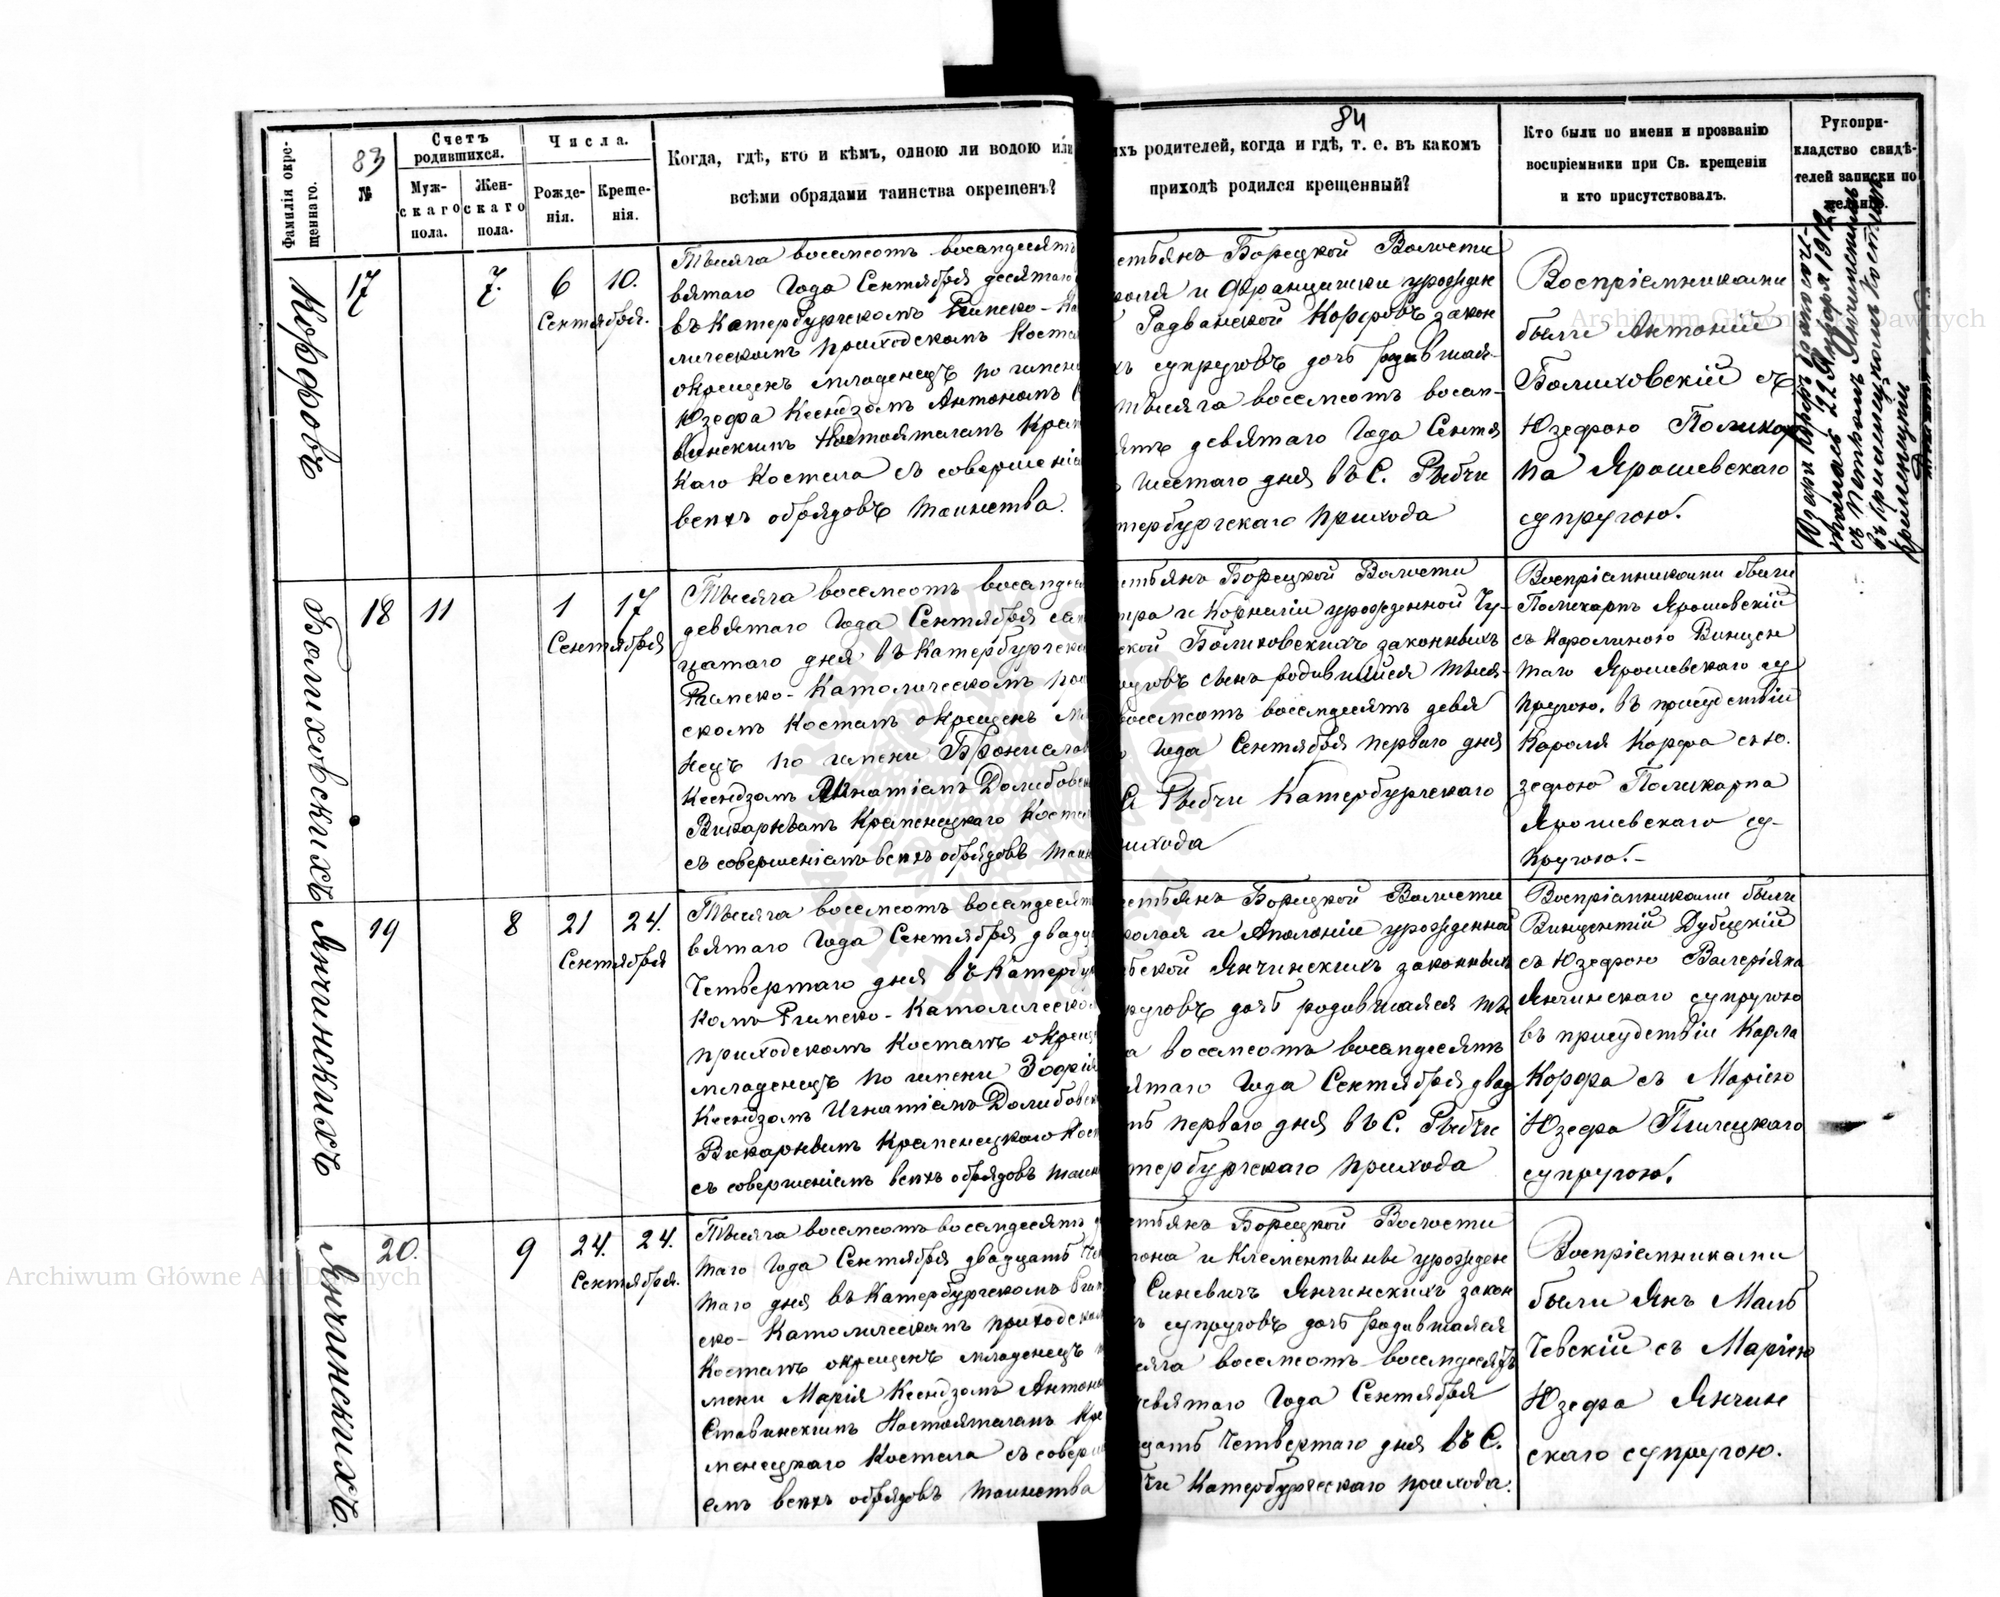 83
84
Фамилія окре-
щеннаго.
№
Счетъ
родившихся.
Муж-
скаго
пола.
Жен-
скаго
пола.
Числа.
Рожде-
нія.
Креще-
нія.
Когда, гдѣ, кто и кѣмъ, одною ли водою или
всѣми обрядами таинства окрещенъ?
ихъ родителей, когда и гдѣ, т. е. въ какомъ
приходѣ родился крещенный?
Кто были по имени и прозванію
воспріемники при Св. крещеніи
и кто присутствовалъ.
Рукопри-
кладство свидѣ-
телей записки по
желанію.
Корфовъ
17
7.
6
10.
Сентября.
Тысяча восемсотъ восемдесятъ
вятаго Года Сентября десятаго
въ Катербургскомъ Римско-Ка
лическомъ приходскомъ Костел
окрещенъ младенецъ по имени
Юзефа Ксендзомъ Антономъ С
винскимъ Настоятелемъ Крем
каго Костела съ совершеніе
всехъ обрядовъ таинства.
стьянъ Борецкой Волости
роля и Францишки урожден
Радванской Корфовъ закон
хъ супруговъ дочь родившая-
тысяча восемсотъ восем-
ятъ девятаго Года Сентя
шестаго дня въ С. Рыбчи
тербургскаго прихода
Воспріемниками
были Антоній
Болиховскій съ
Юзефою Поликар
па Ярошевскаго
супругою.
Юзефа Корфъ
22 Января 1912
съ Петромъ Янчинскимъ
въ кременецкомъ костелѣ
Болиховскихъ
18
11
1
17
Сентября
Тысяча восемсотъ восемдеся
девятаго Года Сентября сем
цатаго дня въ Катербургско
Римско-Католическомъ при
скомъ Костелѣ окрещенъ мл
нецъ по имени Брониславъ
Ксендзомъ Игнатіемъ Долибовск
Викарнымъ Кременецкаго Косте
съ совершеніемъ всехъ обрядовъ таин
стьянъ Борецкой Волости
тра и Корнеліи урожденной Чу-
ской Болиховскихъ законныхъ
руговъ сынъ родившійся тыся-
восемсотъ восемдесятъ девя
Года Сентября перваго дня
С. Рыбчи Катербургскаго
рихода
Воспріемниками были
Поликарпъ Ярошевскій
съ Каролиною Винцен
таго Ярошевскаго су
пругою. въ присудствіи
Кароля Корфа съ Ю.
зефою Поликарпа
Ярошевскаго су-
пругою.-
Янчинскихъ
19
8
21
24.
Сентября
Тысяча восемсотъ восемдесят
вятаго Года Сентября двадц
четвертаго дня въ Катербур
комъ Римско-Католическом
приходскомъ Костелѣ окрещ
младенецъ по имени Зофія
Ксендзомъ Игнатіемъ Долибовск
Викарнымъ Кременецкаго Кост
съ совершеніемъ всехъ обрядовъ таин
стьянъ Борецкой Волости
колая и Аполоніи урожденна
ской Янчинскихъ законныхъ
руговъ дочь родившаяся ты
а восемсотъ восемдесятъ
ятаго Года Сентября двад
ть перваго дня въ С. Рыбчи
тербургскаго прихода
Воспріемниками были
Винцентій Дубецкій
съ Юзефою Валеріяна
Янчинскаго супругою
въ присудствіи Карла
Корфа съ Маріею
Юзефа Пилецкаго
супругою.
Янчинскихъ.
20.
9
24.
24.
Сентября.
Тысяча восемсотъ восемдесятъ д
таго Года Сентября двадцать че
таго дня въ Катербургскомъ Рим
ско-Католическомъ приходском
Костелѣ окрещенъ младенецъ
мени Марія Ксендзомъ Антоно
Ставинскимъ Настоятелемъ Кре
менецкаго Костела съ соверш
емъ всехъ обрядовъ таинства
стьянъ Борецкой Волости
тона и Клементыны урожден
Синевичъ Янчинскихъ закон
ъ супруговъ дочь родившаяся
сяча восемсотъ восемдесятъ
евятаго Года Сентября
цать четвертаго дня въ С.
бчи Катербургскаго прихода.
Воспріемниками
были Янъ Маль
чевскій съ Маріею
Юзефа Янчин
скаго супругою.
Archiwum Główne Akt Dawnych
Archiwum Główne Akt Dawnych